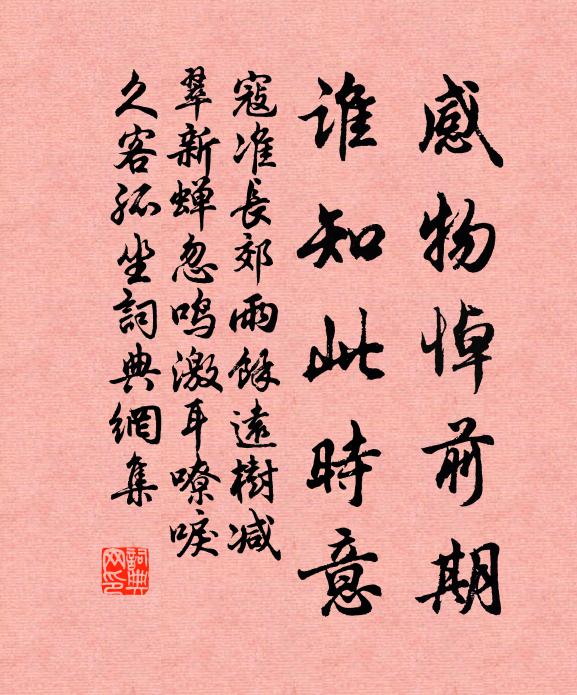 感物悼前期
誰知此時意
寇准長郊雨餘遠樹减
翠新蝉忽鸣激耳嘹唳
久客孤坐詞典網集
詞典
网印